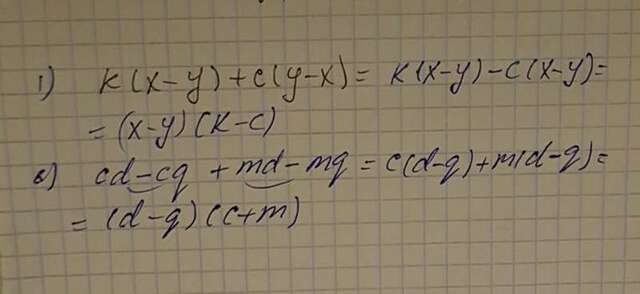 1) k(x-y)+c(y-x)= k(x-y)-c(x-y)=
=(x-y)(k-c)
2) cd-cq+md-mq=c(d-q)+m(d-q)=
=(d-q)(c+m)